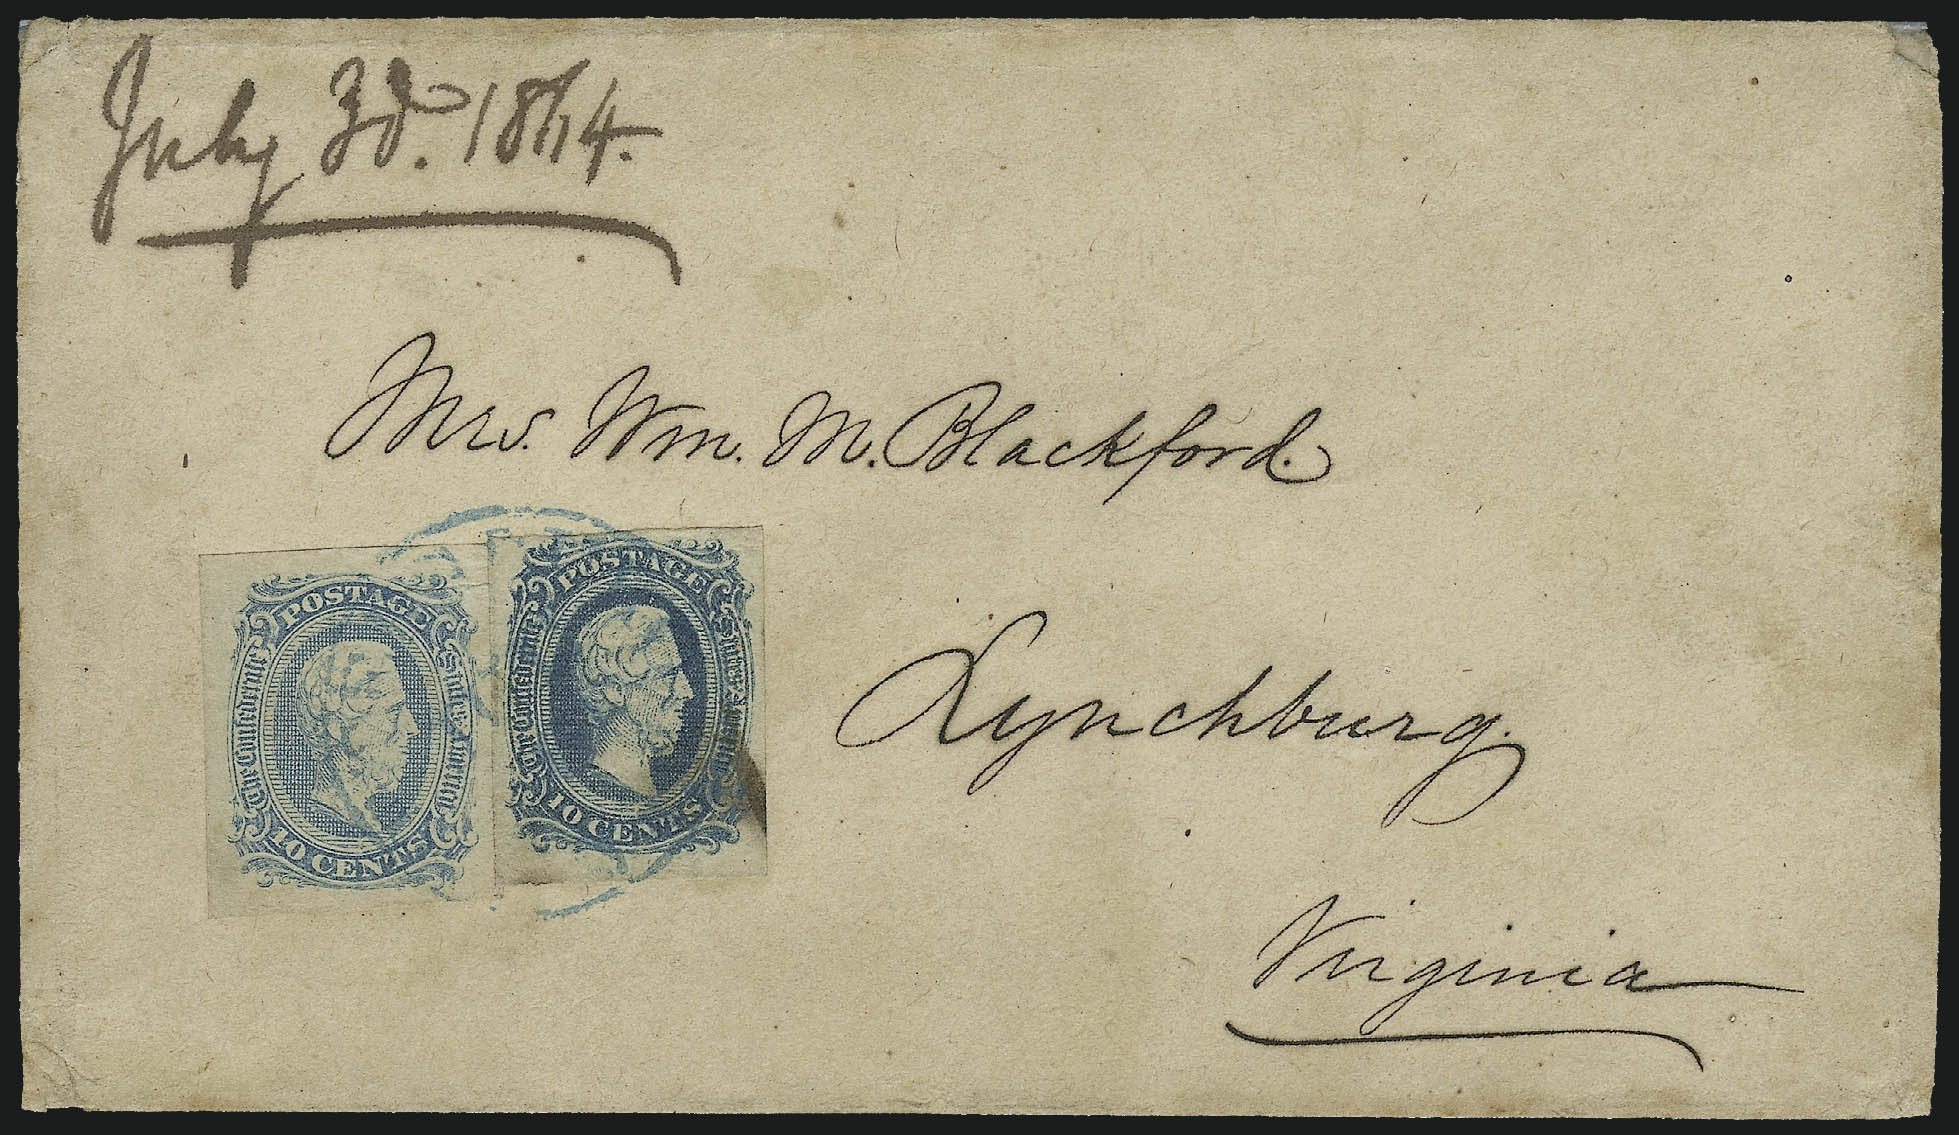 July 3d. 1864.
Mrs. Wm. M. Blackford.
POSTAGE
The Confederate States of America
10 CENTS
POSTAGE
The Confederate States of America
10 CENTS
Lynchburg.
Virginia